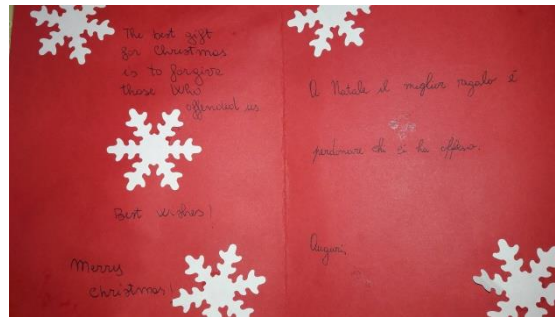 The best gift
for Christmas
is to forgive
those who
offended us.
Best wishes!
Merry
Christmas!
A Natale il miglior regalo è
perdonare chi ci ha offeso.
Auguri,